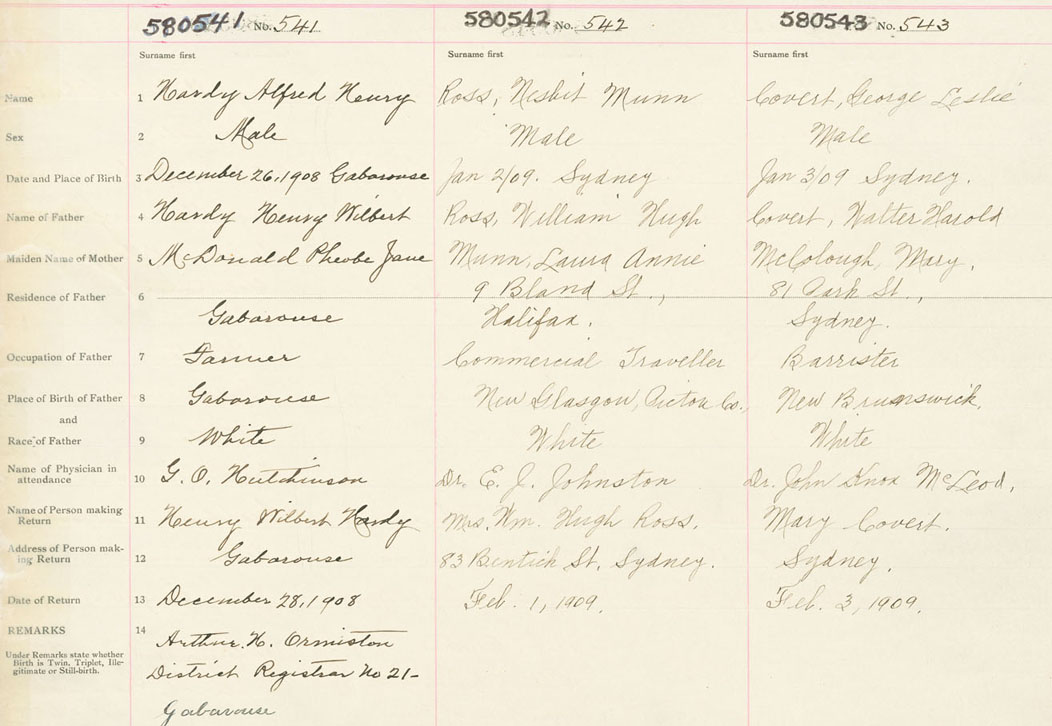 580541 No. 541 580542 No. 542 580543 No. 543
Surname first Surname first Surname first
Name 1 Hardy Alfred Henry Ross, Nesbit Munn Covert, George Leslie
Sex 2 Male Male Male
Date and Place of Birth 3 December 26, 1908 Gabarouse Jan 2/09. Sydney Jan 3/09 Sydney.
Name of Father 4 Hardy Henry Wilbert Ross, William Hugh Covert, Walter Harold
Maiden Name of Mother 5 McDonald Pheobe Jane Munn, Laura Annie McColough, Mary.
Residence of Father 6 9 Bland St., 81 Park St.,
Gabarouse Halifax. Sydney.
Occupation of Father 7 Farmer Commercial Traveller Barrister
Place of Birth of Father 8 Gabarouse New Glasgow, Pictou Co., New Brunswick.
and
Race of Father 9 White White White
Name of Physician in
attendance 10 G. O. Hutchinson Dr. E. J. Johnston Dr. John Knox McLeod.
Name of Person making
Return 11 Henry Wilbert Hardy Mrs. Wm. Hugh Ross. Mary Covert.
Address of Person mak-
ing Return 12 Gabarouse 83 Bentick St. Sydney. Sydney.
Date of Return 13 December 28, 1908 Feb. 1, 1909. Feb. 3, 1909.
REMARKS 14 Arthur H. Ormiston
Under Remarks state whether
Birth is Twin, Triplet, Ille-
gitimate or Still-birth.
District Registrar No 21-
Gabarouse